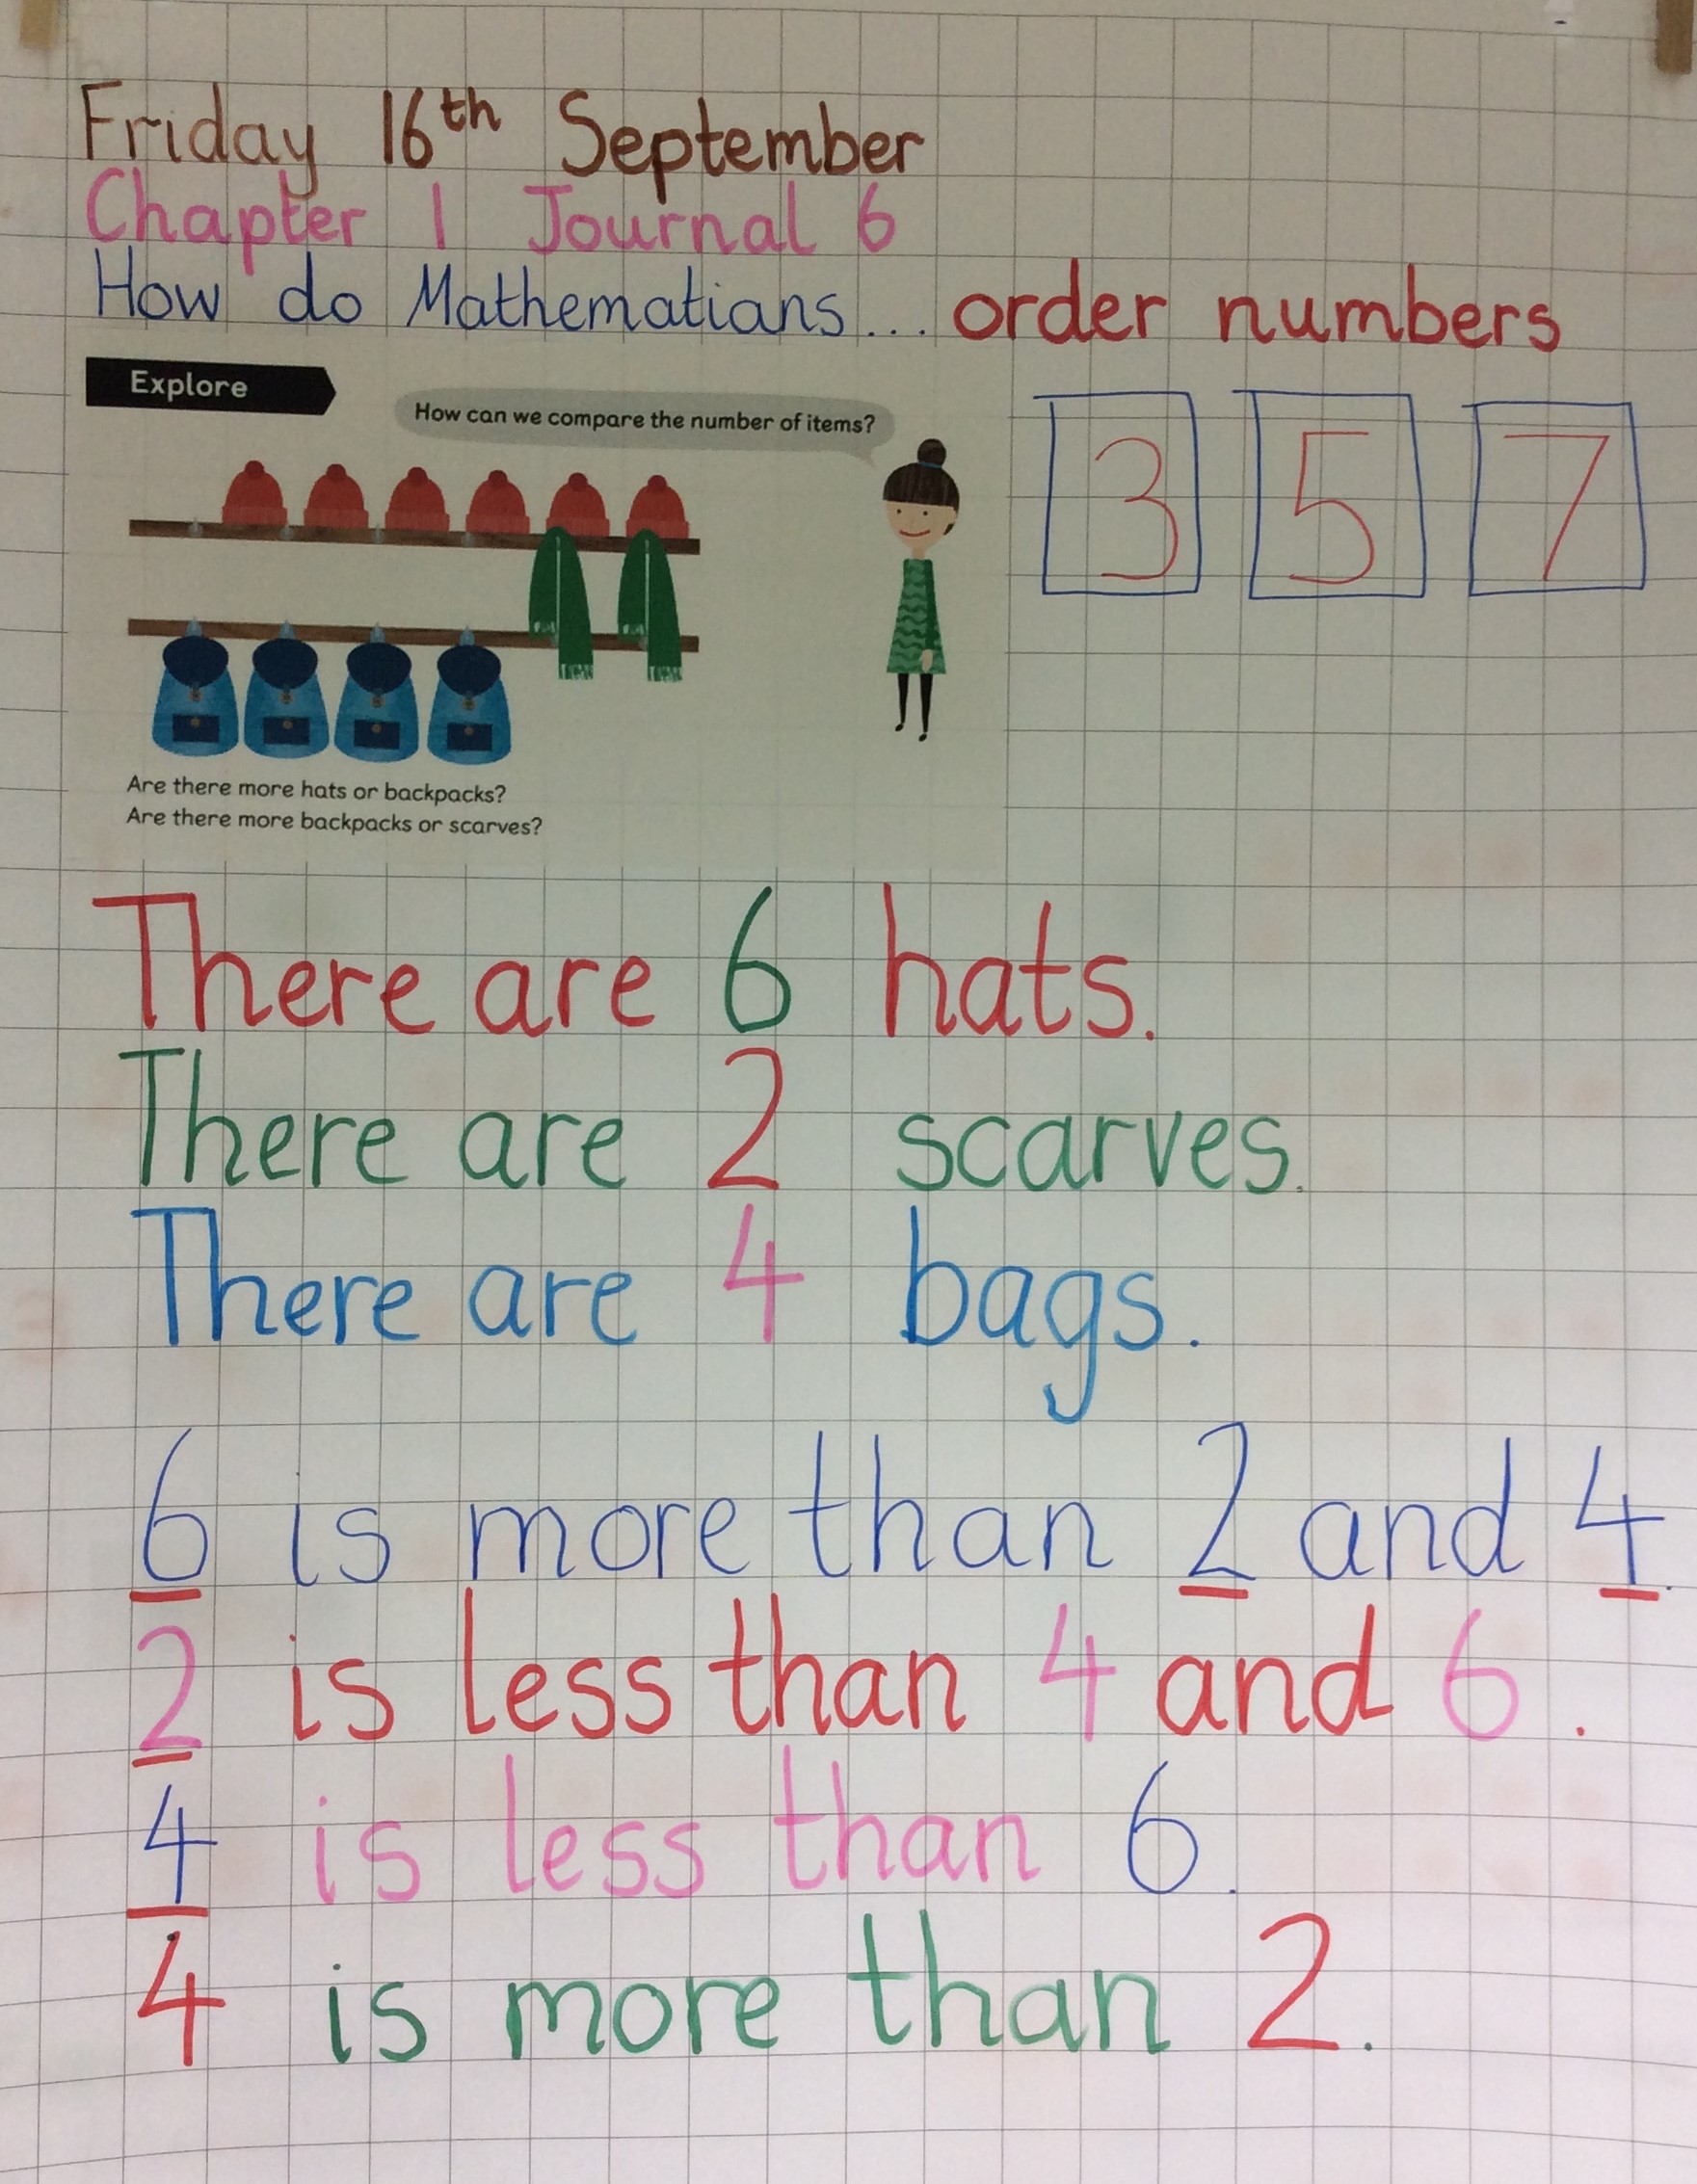 Friday 16th September
Chapter 1 Journal 6
How do Mathematians... order numbers
Explore
How can we compare the number of items?
3 5 7
Are there more hats or backpacks?
Are there more backpacks or scarves?
There are 6 hats.
There are 2 scarves.
There are 4 bags.
6 is more than 2 and 4.
2 is less than 4 and 6.
4 is less than 6.
4 is more than 2.